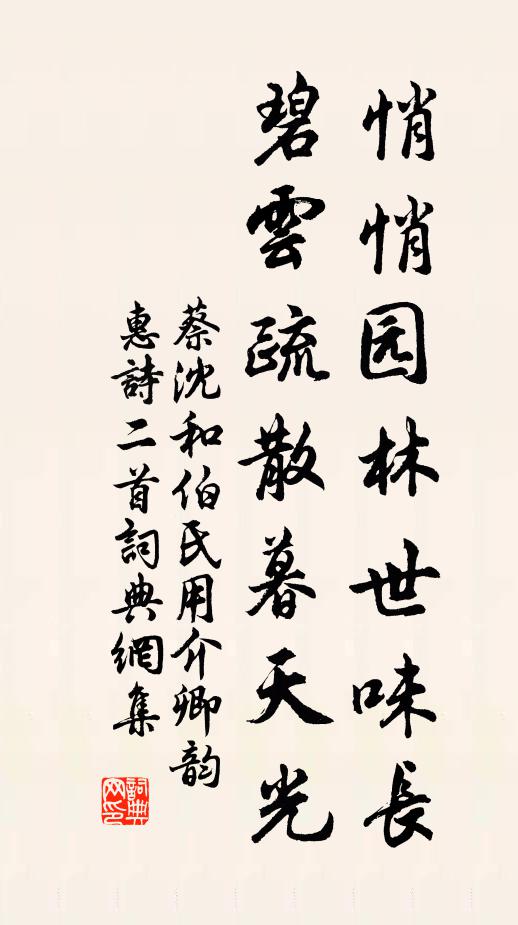 悄悄园林世味長
碧雲疏散暮天光
蔡沈和伯氏用介卿韵
惠詩二首詞典網集
詞典网印